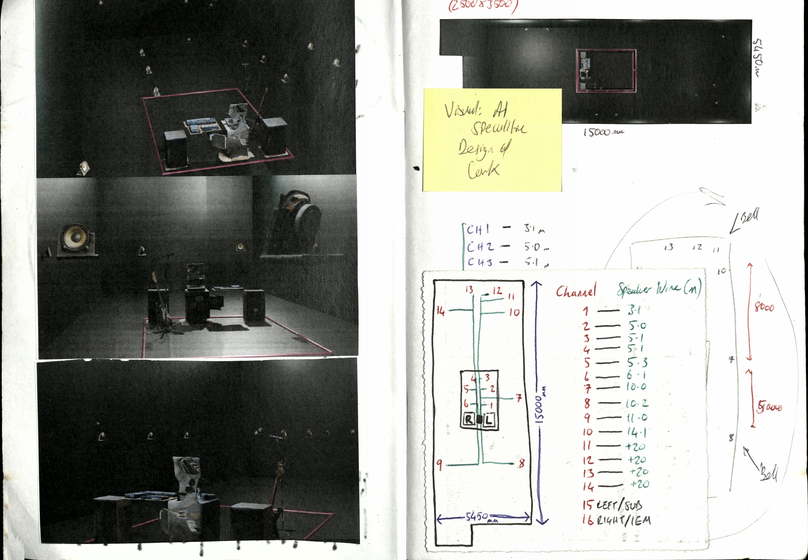 (2500x3500)
5450m
15000mm
Visual: AI
Speculative
Design of
Work
CH1 — 3.1m
CH2 — 5.0m
CH3 — 5.1m
Bell
13 12 11
10
8000
7
8
Bell
13 12 11
14 10
4 3
5 2
6 1
7
R L
9 8
15000mm
5450mm
Channel Speaker Wire (m)
1 — 3.1
2 — 5.0
3 — 5.1
4 — 5.1
5 — 5.3
6 — 6.1
7 — 10.0
8 — 10.2
9 — 11.0
10 — 14.1
11 — +20
12 — +20
13 — +20
14 — +20
15 LEFT/SUB
16 RIGHT/IEM